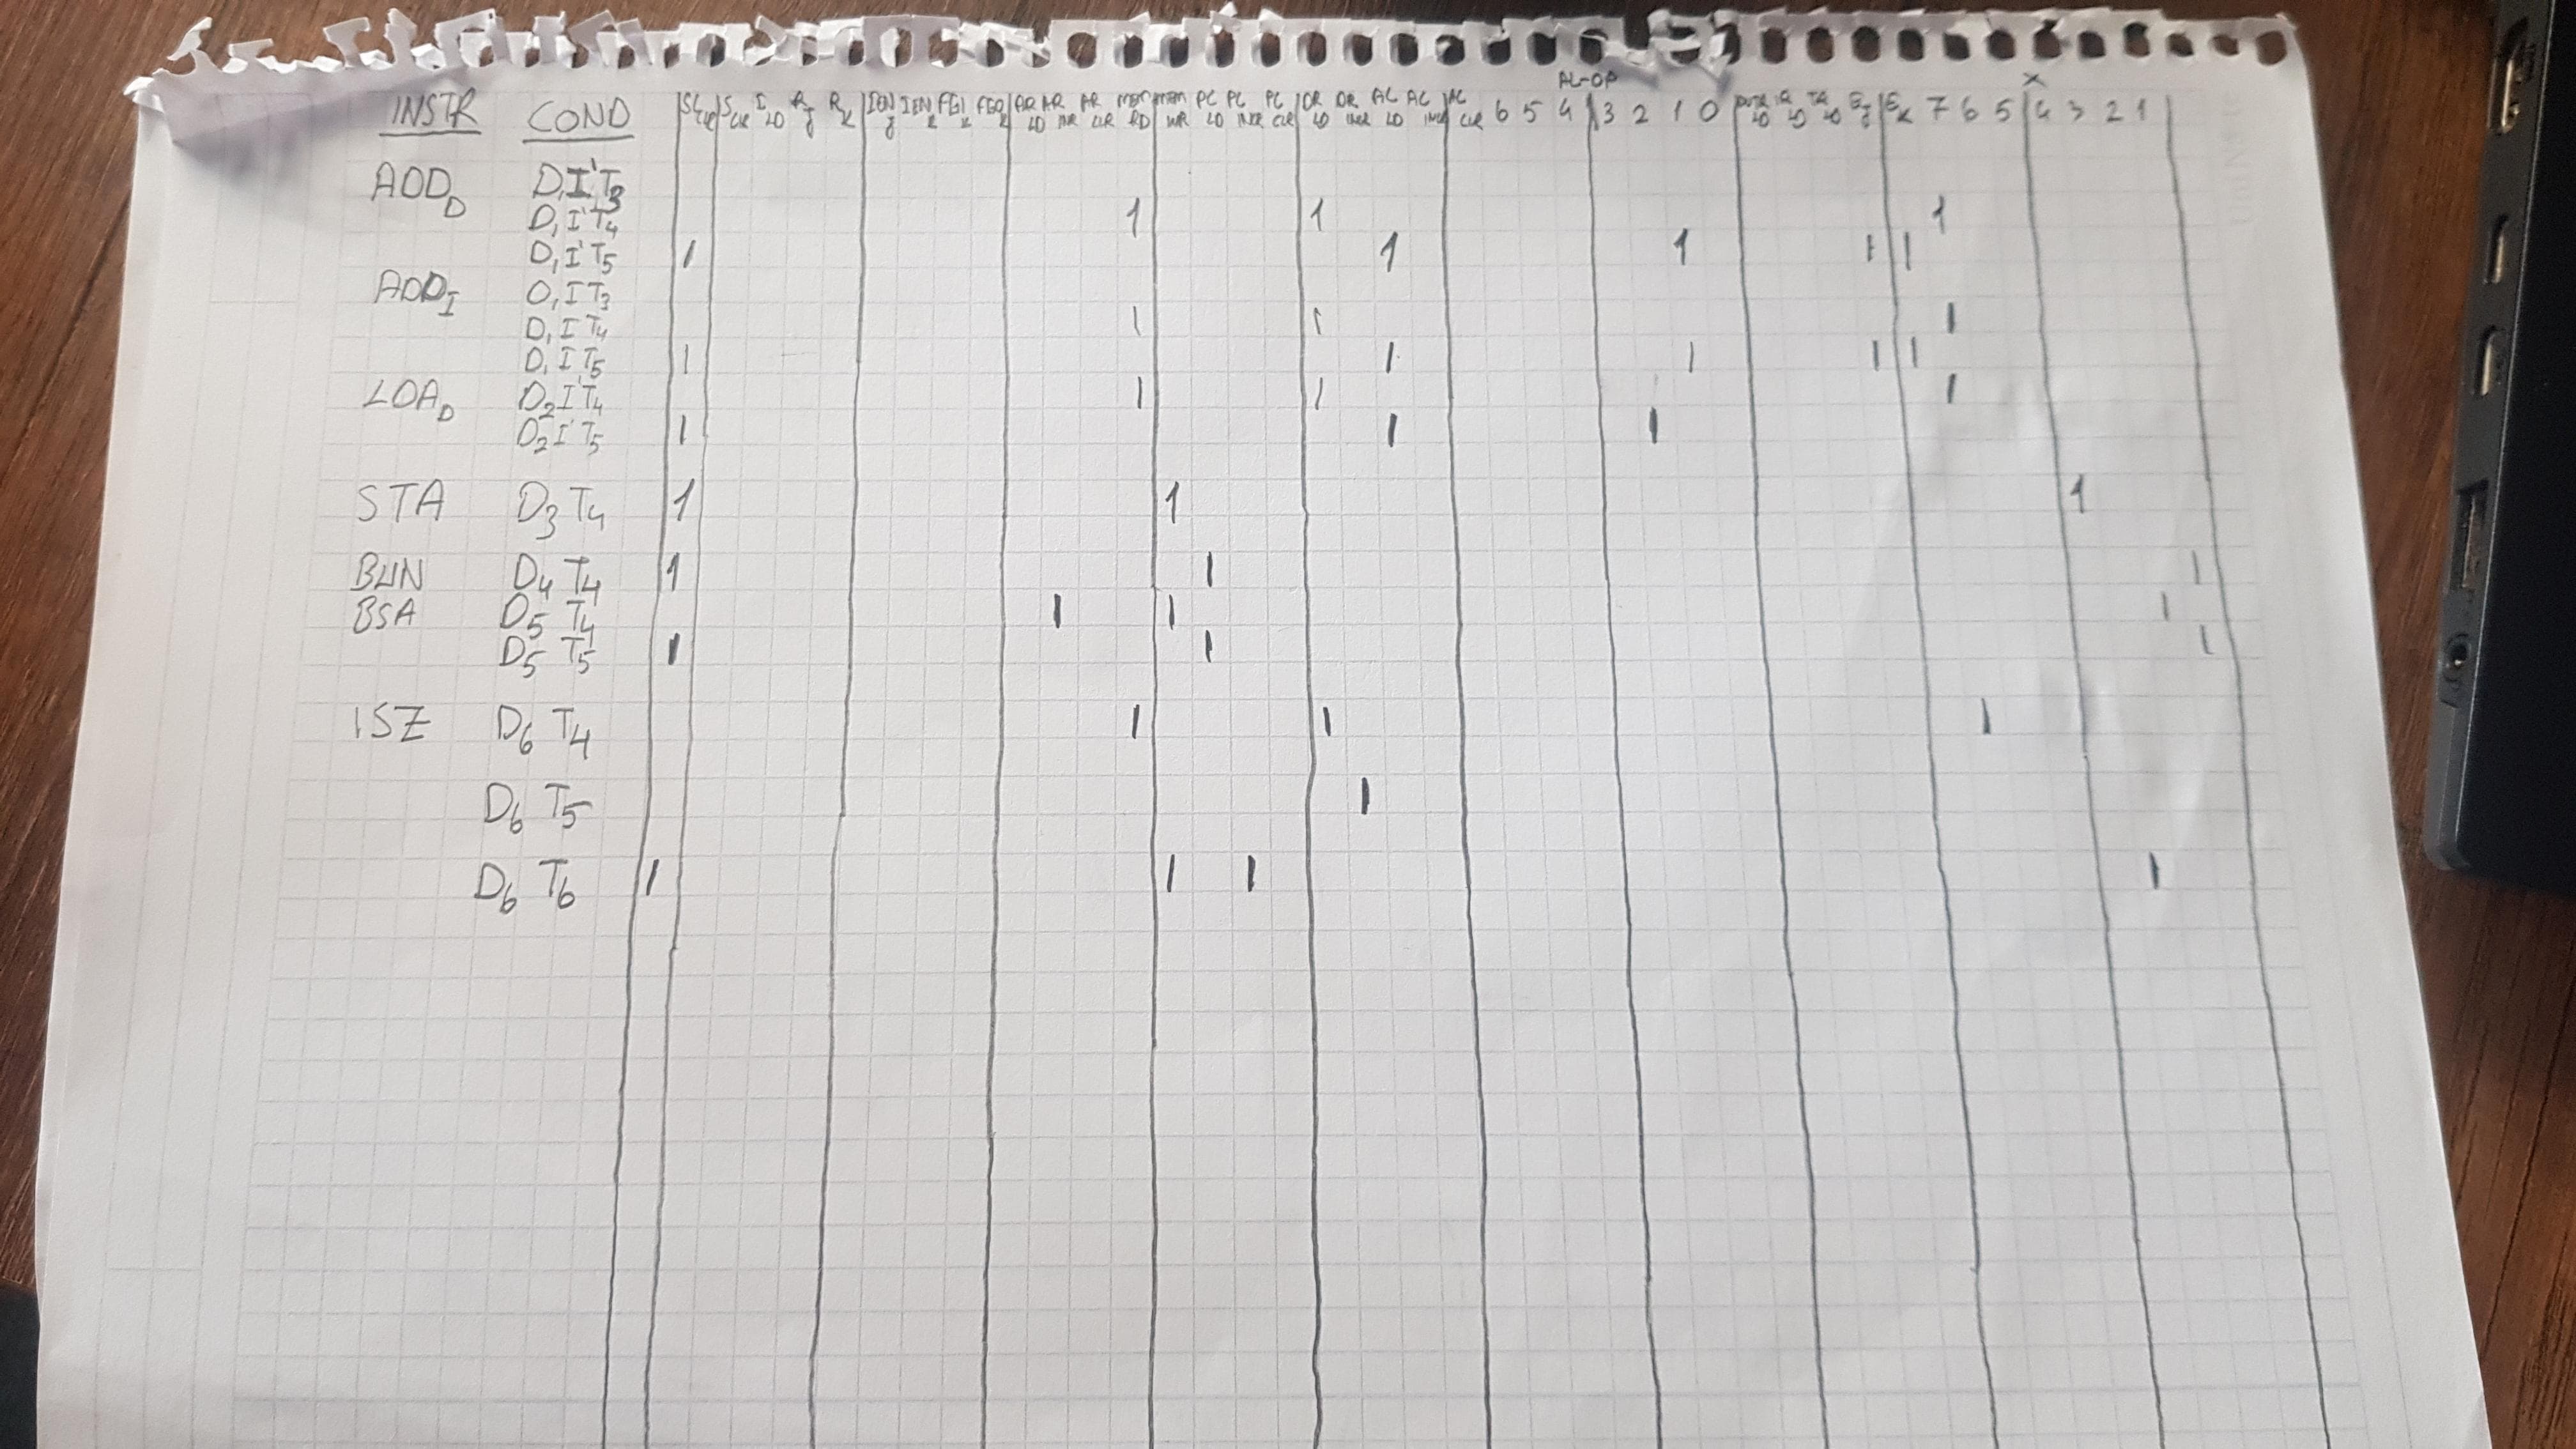 AL-OP X
INSTR COND SC CLR S CLR I LD R J R K IEN J IEN K FGI K FGO K AR LD AR INR AR CLR MEM RD MEM WR PC LD PC INR PC CLR DR LD DR INR AC LD AC INR AC CLR 6 5 4 3 2 1 0 OUTR LD IR LD TR LD E J E K 7 6 5 4 3 2 1
ADD D D1 I' T3
D1 I' T4 1 1 1
D1 I' T5 1 1 1 1 1
ADD I D1 I T3
D1 I T4 1 1 1
D1 I T5 1 1 1 1 1
LDA D D2 I' T4 1 1 1
D2 I' T5 1 1 1
STA D3 T4 1 1 1
BUN D4 T4 1 1 1
BSA D5 T4 1 1 1
D5 T5 1 1 1
ISZ D6 T4 1 1 1
D6 T5 1
D6 T6 1 1 1 1